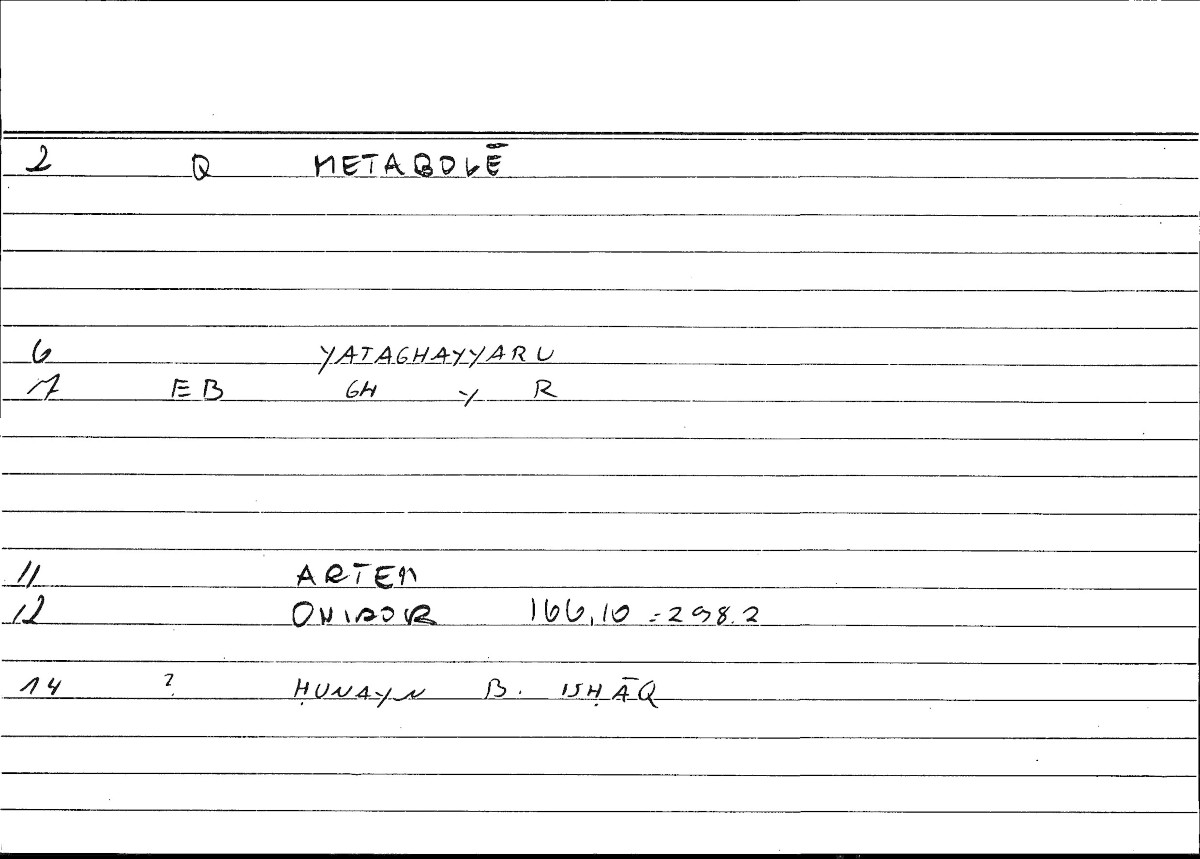 2 Q METABOLĒ
6 YATAGHAYYARU
7 EB GH Y R
11 ARTEM
12 ONIROR 166,10 = 298.2
14 ? ḤUNAYN B. ISḤĀQ